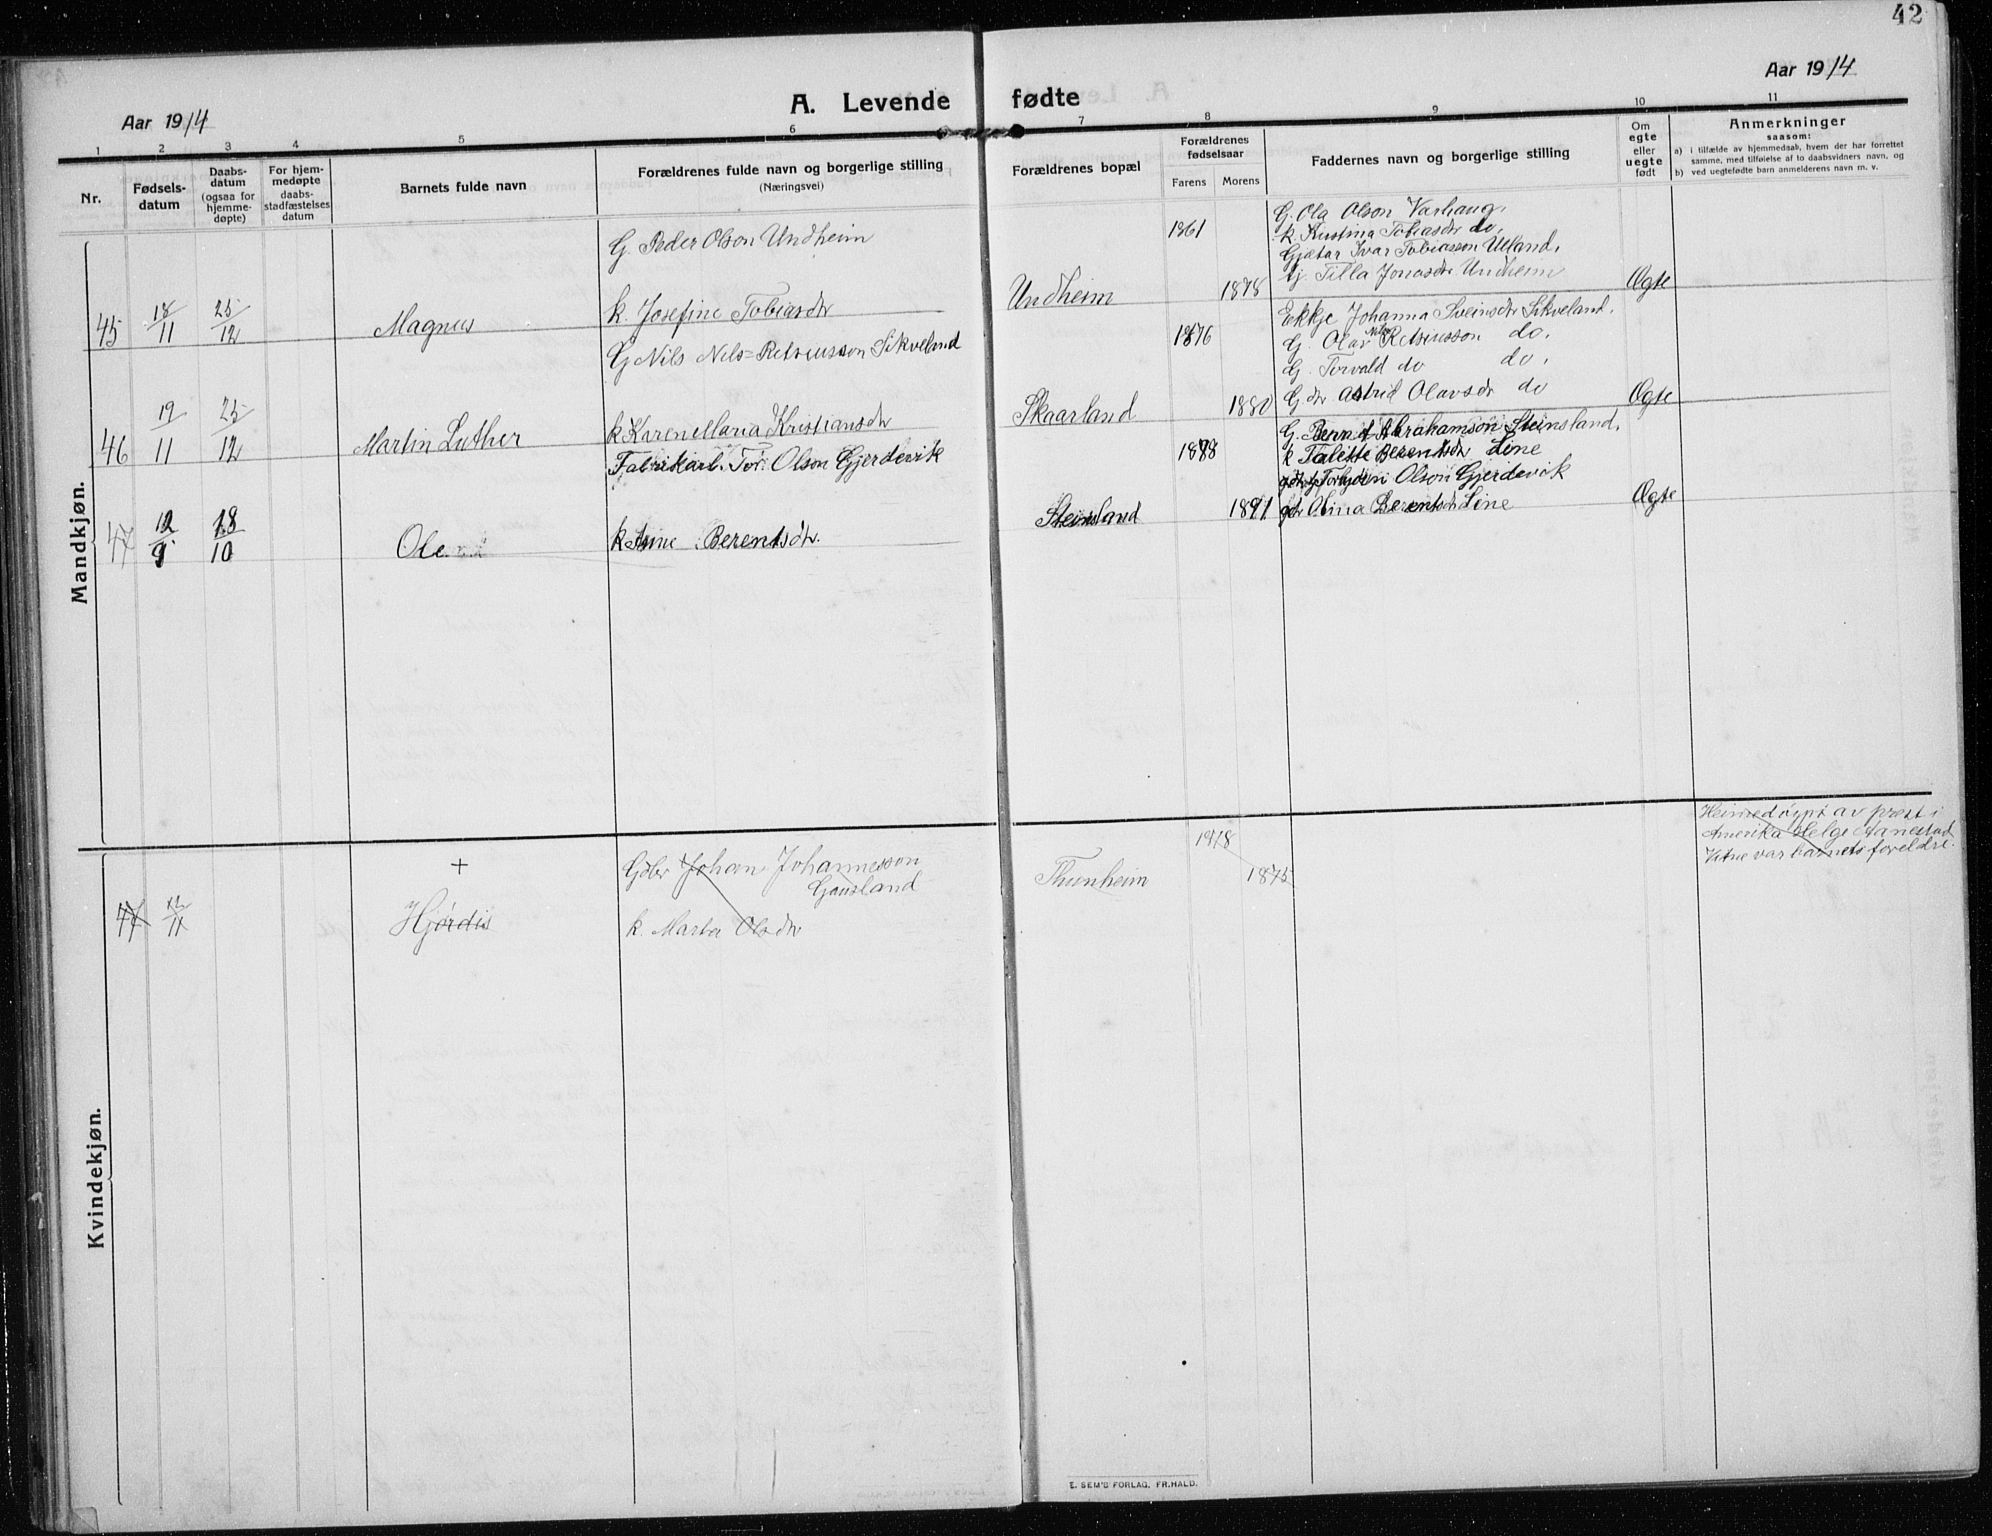 42
Aar 1914
A. Levende
fødte
Aar 1914
1 2 3 4 5 6
7 8 9 10 11
Nr.
Fødsels-
datum
Daabs-
datum
(ogsaa for
hjemme-
døpte)
For hjem-
medøpte
daabs-
stadfæstelses
datum
Barnets fulde navn
Forældrenes fulde navn og borgerlige stilling
(Næringsvei)
Forældrenes bopæl
Forældrenes
fødselsaar
Farens Morens
Faddernes navn og borgerlige stilling
Om
egte
eller
uegte
født
Anmerkninger
saasom:
a) i tilfælde av hjemmedaab, hvem der har forrettet
samme, med tilføielse af to daabsvidners navn, og
b) ved uegtefødte barn anmelderens navn m. v.
Mandkjøn.
G. Peder Olson Undheim
45 18/11 25/12 Magnus k. Josefine Tobiasdtr
Undheim 1861 1878
G. Ola Olson Varhaug,
k. Kristina Tobiasdtr do,
Gjætar Ivar Tobiasson Ueland,
tj. Tilla Jonasdtr Undheim
Ægte
G Nils Nils=Retsiusson Sikveland
46 19/11 25/12 Martin Luther k Karen Maria Kristiansdtr
Skaarland 1876 1880
Ekkje Johanna Sveinsdtr Sikveland,
G. Olav Nils Retsiusson do,
G. Torvald do do,
Gdr Astrid Olavsdtr do
Ægte
Fabrikarb. Tor Olson Gjerdevik
47 12/9 18/10 Ole k Berentsdtr.
Steinsland 1888 1891
G. Bernt Abrahamson Steinsland,
k Talette Berentsdtr Line
Torbjørn Olson Gjerdevik
gdr Berentsdtr Line
Ægte
Kvindekjøn.
+
Gdbr Johan Johannesson
Gausland
47 12/11 Hjørdis k. Marta Olsdtr
Thunheim 1878 1875
Heimedøypt av prest i
Amerika Helge Aanestad
Vitne var barnets foreldre.
E. SEM'S FORLAG, FR.HALD.